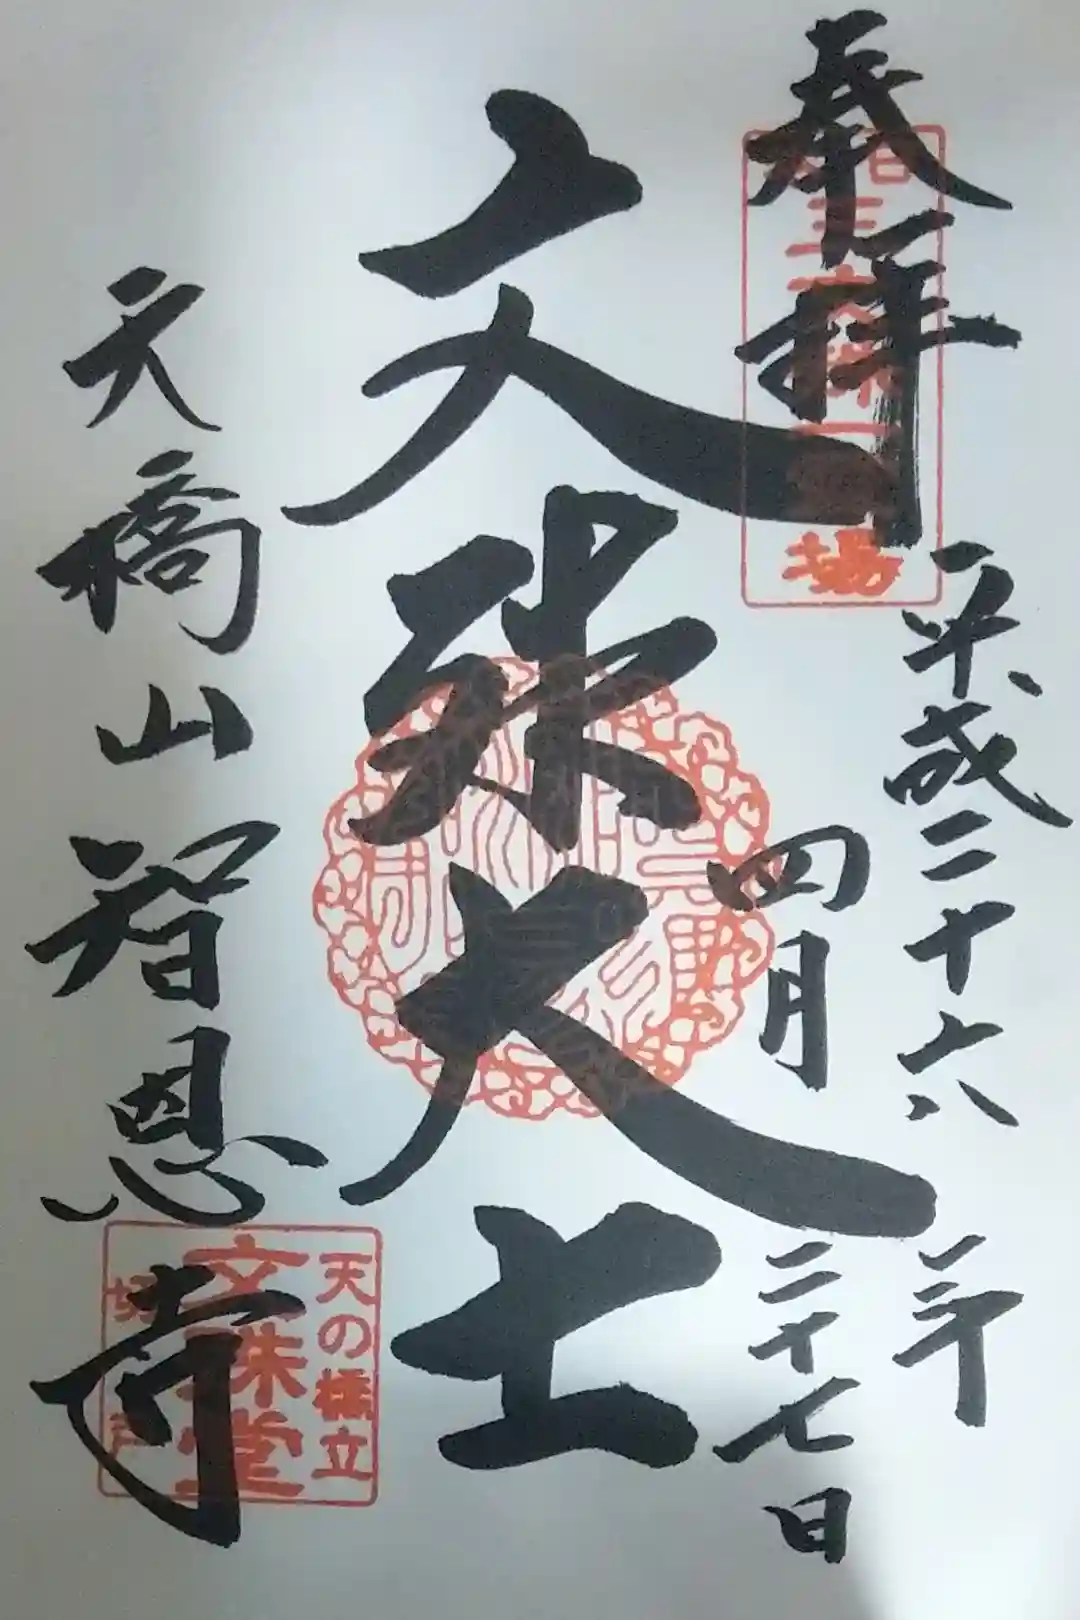 奉拝
日本三文殊第一霊場
平成二十六年
四月二十七日
文殊大士
天橋山智恩寺
天の橋立
文殊堂